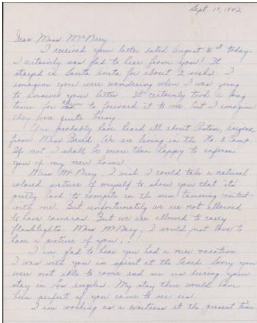 Sept. 14, 1942
Dear Miss McNary,
I received your letter dated August 31st today.
I certainly was glad to hear from you! It
stayed in Santa Anita for about 2 weeks. I
imagine you were wondering when I was going
to answer your letter. It certainly took a long
time for to forward it to me, but I imagine
they are quite busy.
You probably have heard all about Poston,
from Miss Breed. We are living in the No. 3 Camp
If not I shall be more than happy to inform
you of my new home.
Miss McNary, I wish I could take a natural
colored picture of myself to show you that it's
pretty hard to compete in the sun tanning contest
with me. But unfortunately we are not allowed
to have cameras. But we are allowed to carry
flashlights. Miss McNary, I would just love to
have a picture of you,
I am glad to hear you had a nice vacation
I was with you in spirit at the beach. Sorry you
were not able to come and see us during your
stay in Los Angeles. My stay there would have
been perfect if you came to see us.
I am working as a waitress at the present time